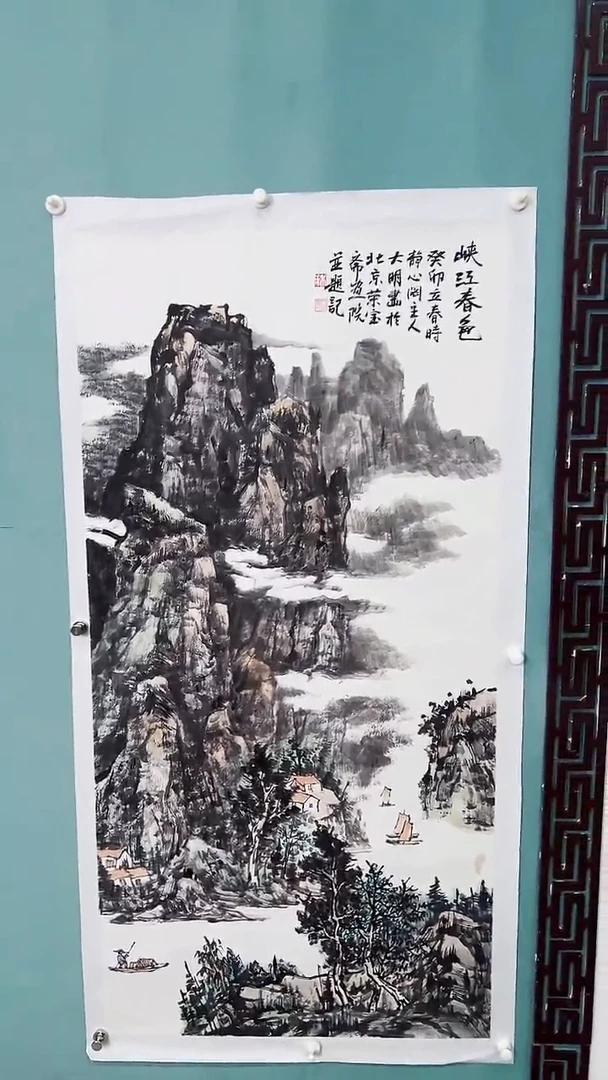 峡江春色
癸卯立春時
静心阁主人
大明畫於
北京荣宝
斋画院
並題記